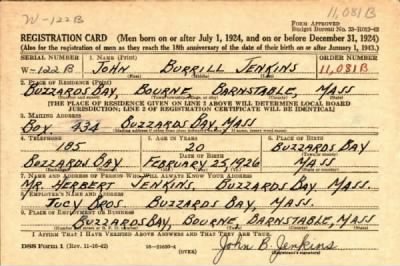 W-122B
11,081B
FORM APPROVED
REGISTRATION CARD (Men born on or after July 1, 1924, and on or before December 31, 1924)
(Also for the registration of men as they reach the 18th anniversary of the date of their birth on or after January 1, 1943.)
SERIAL NUMBER 1. NAME (Print) ORDER NUMBER
W-122B JOHN BURRILL JENKINS 11,081B
(First) (Middle) (Last)
2. PLACE OF RESIDENCE (Print)
BUZZARDS BAY BOURNE BARNSTABLE, MASS
[THE PLACE OF RESIDENCE GIVEN ON LINE 2 ABOVE WILL DETERMINE LOCAL BOARD
JURISDICTION; LINE 2 OF REGISTRATION CERTIFICATE WILL BE IDENTICAL]
3. MAILING ADDRESS
BOX 434 BUZZARDS BAY, MASS
4. TELEPHONE 5. AGE IN YEARS 6. PLACE OF BIRTH
185 20 BUZZARDS BAY
DATE OF BIRTH
BUZZARDS BAY FEBRUARY 25, 1926 MASS
7. NAME AND ADDRESS OF PERSON WHO WILL ALWAYS KNOW YOUR ADDRESS
MR. HERBERT JENKINS, BUZZARDS BAY, MASS.
8. EMPLOYER'S NAME AND ADDRESS
BROS. BUZZARDS BAY, MASS.
9. PLACE OF EMPLOYMENT OR BUSINESS
BUZZARDS BAY, BOURNE, BARNSTABLE, MASS.
I AFFIRM THAT I HAVE VERIFIED ABOVE ANSWERS AND THAT THEY ARE TRUE.
DSS Form 1 (Rev. 11-16-42) (OVER) John B. Jenkins